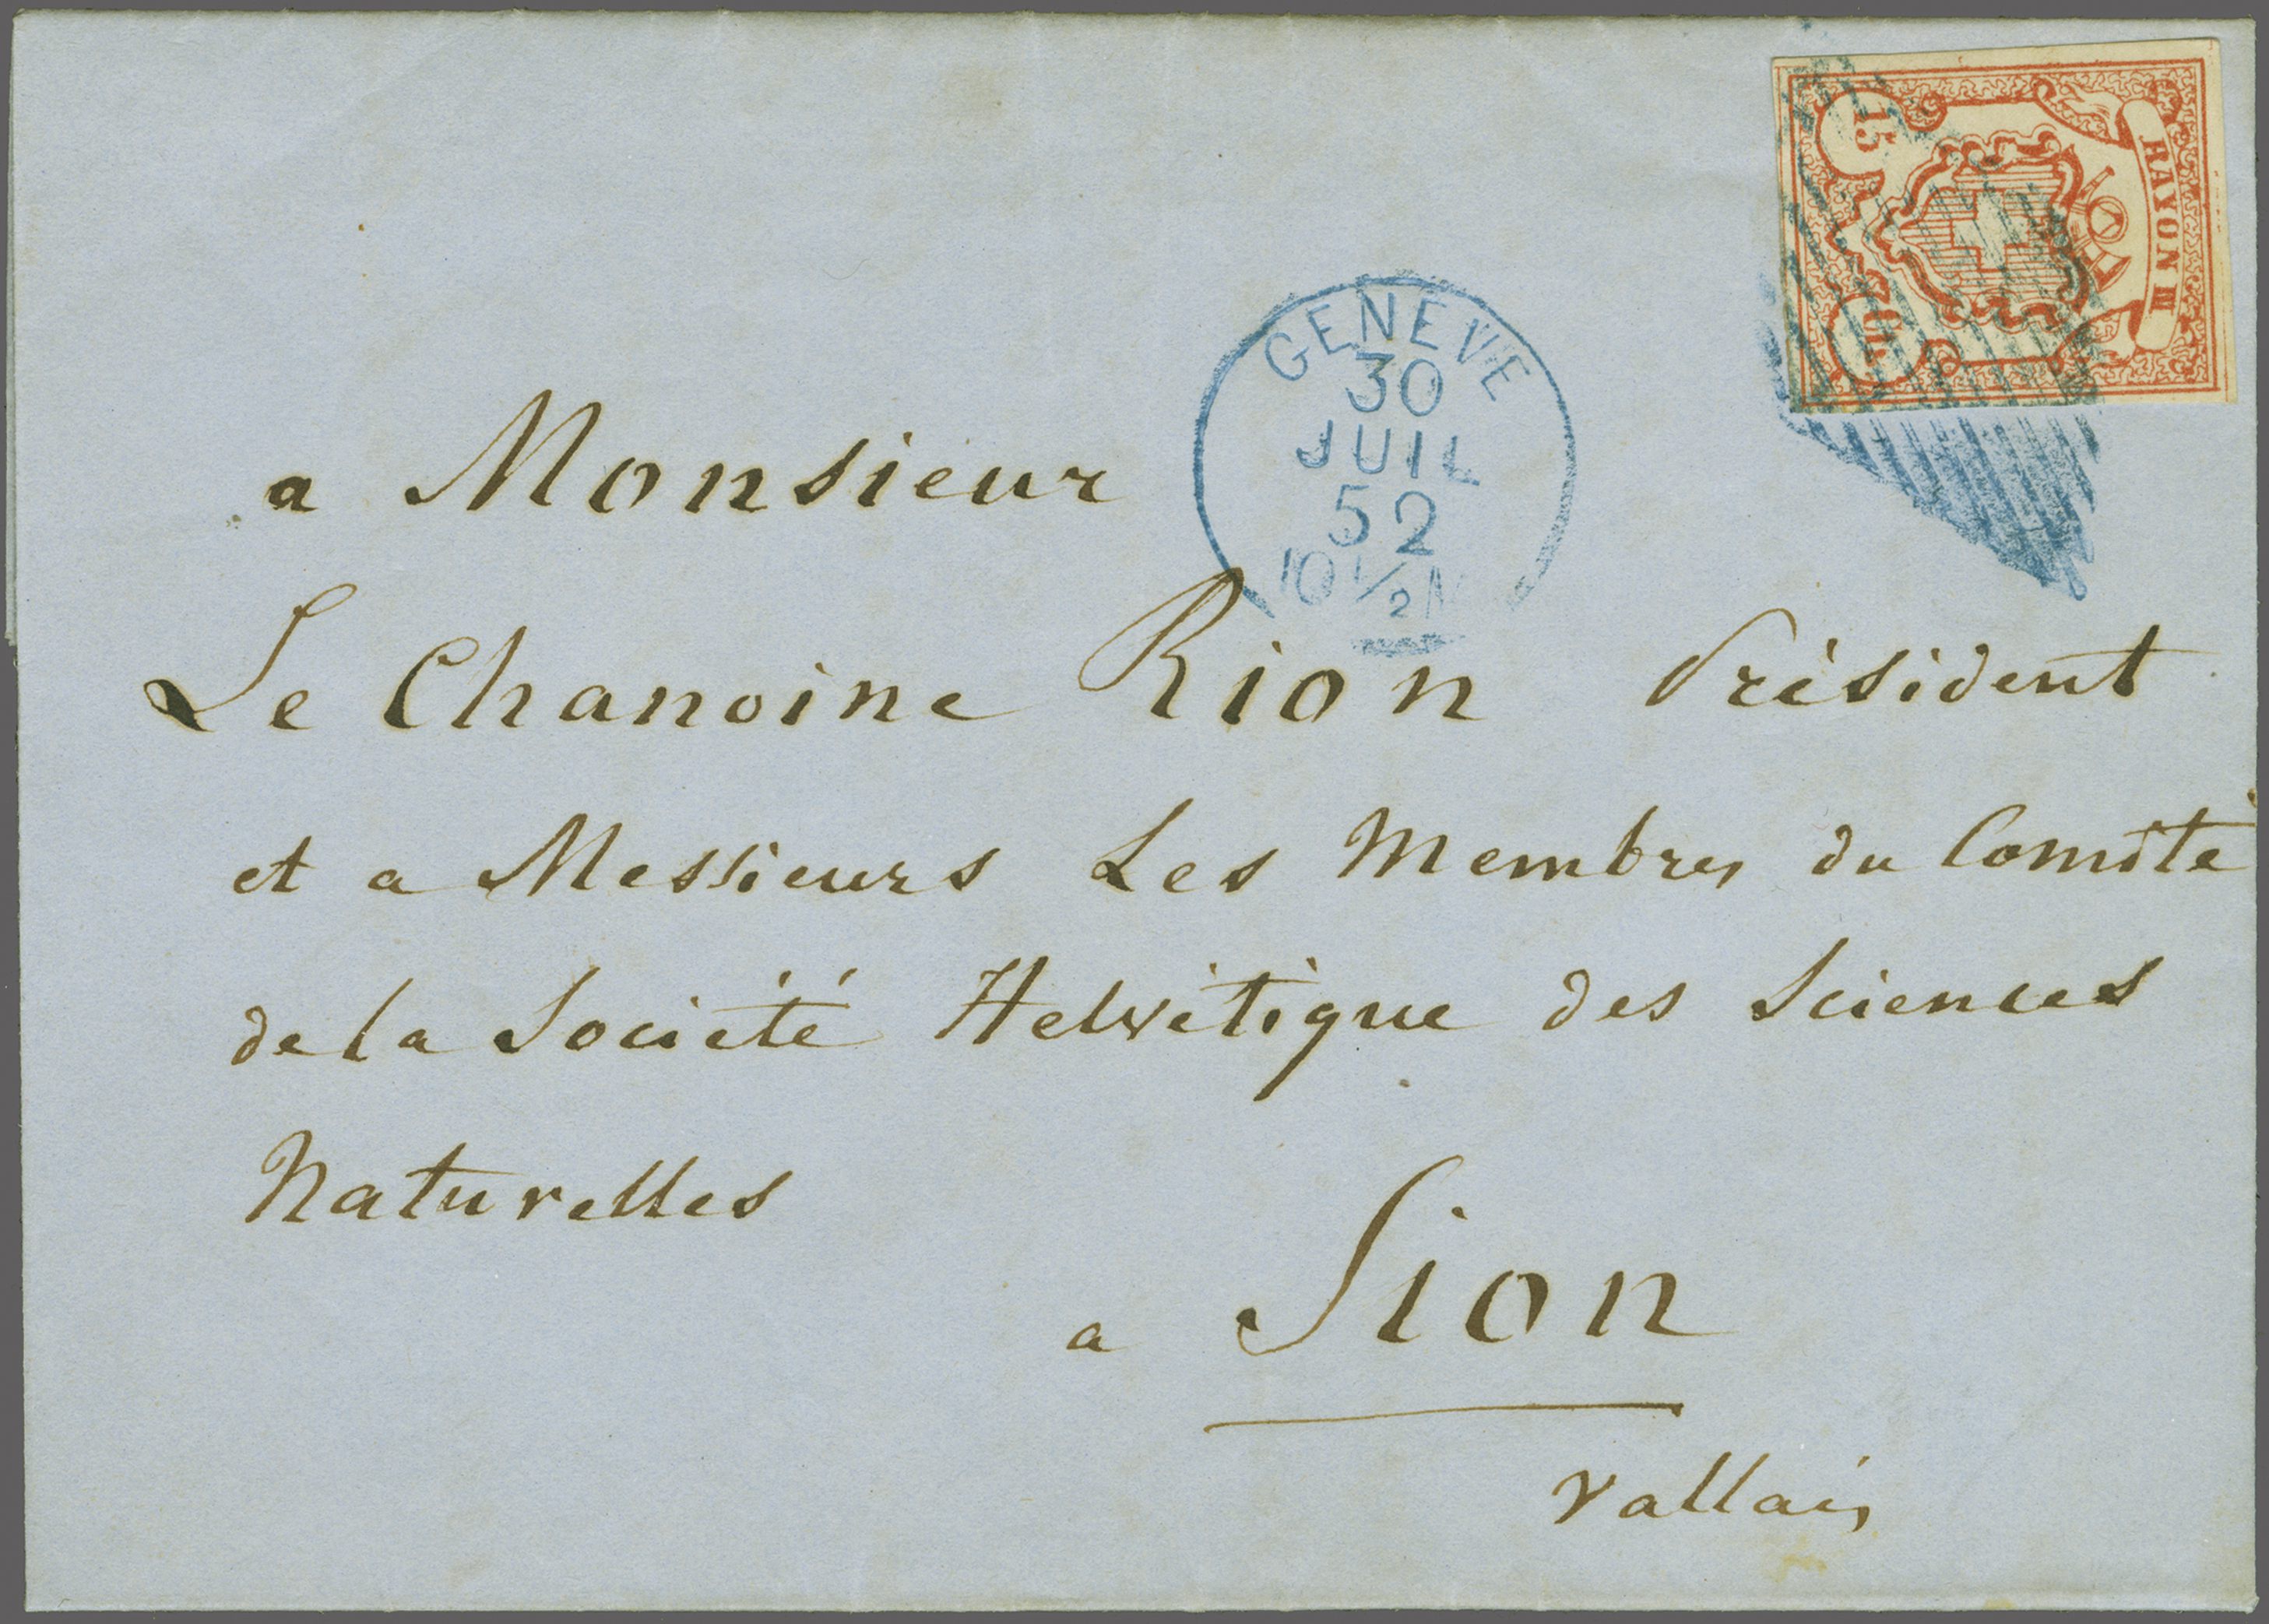 15
RAYON III
Cts.
GENEVE
30
JUIL
52
10 1/2 M
a Monsieur
Le Chanoine Rion Président
et a Messieurs Les Membres du Comité
de la Société Helvétique des Sciences
Naturelles
a Sion
Vallais